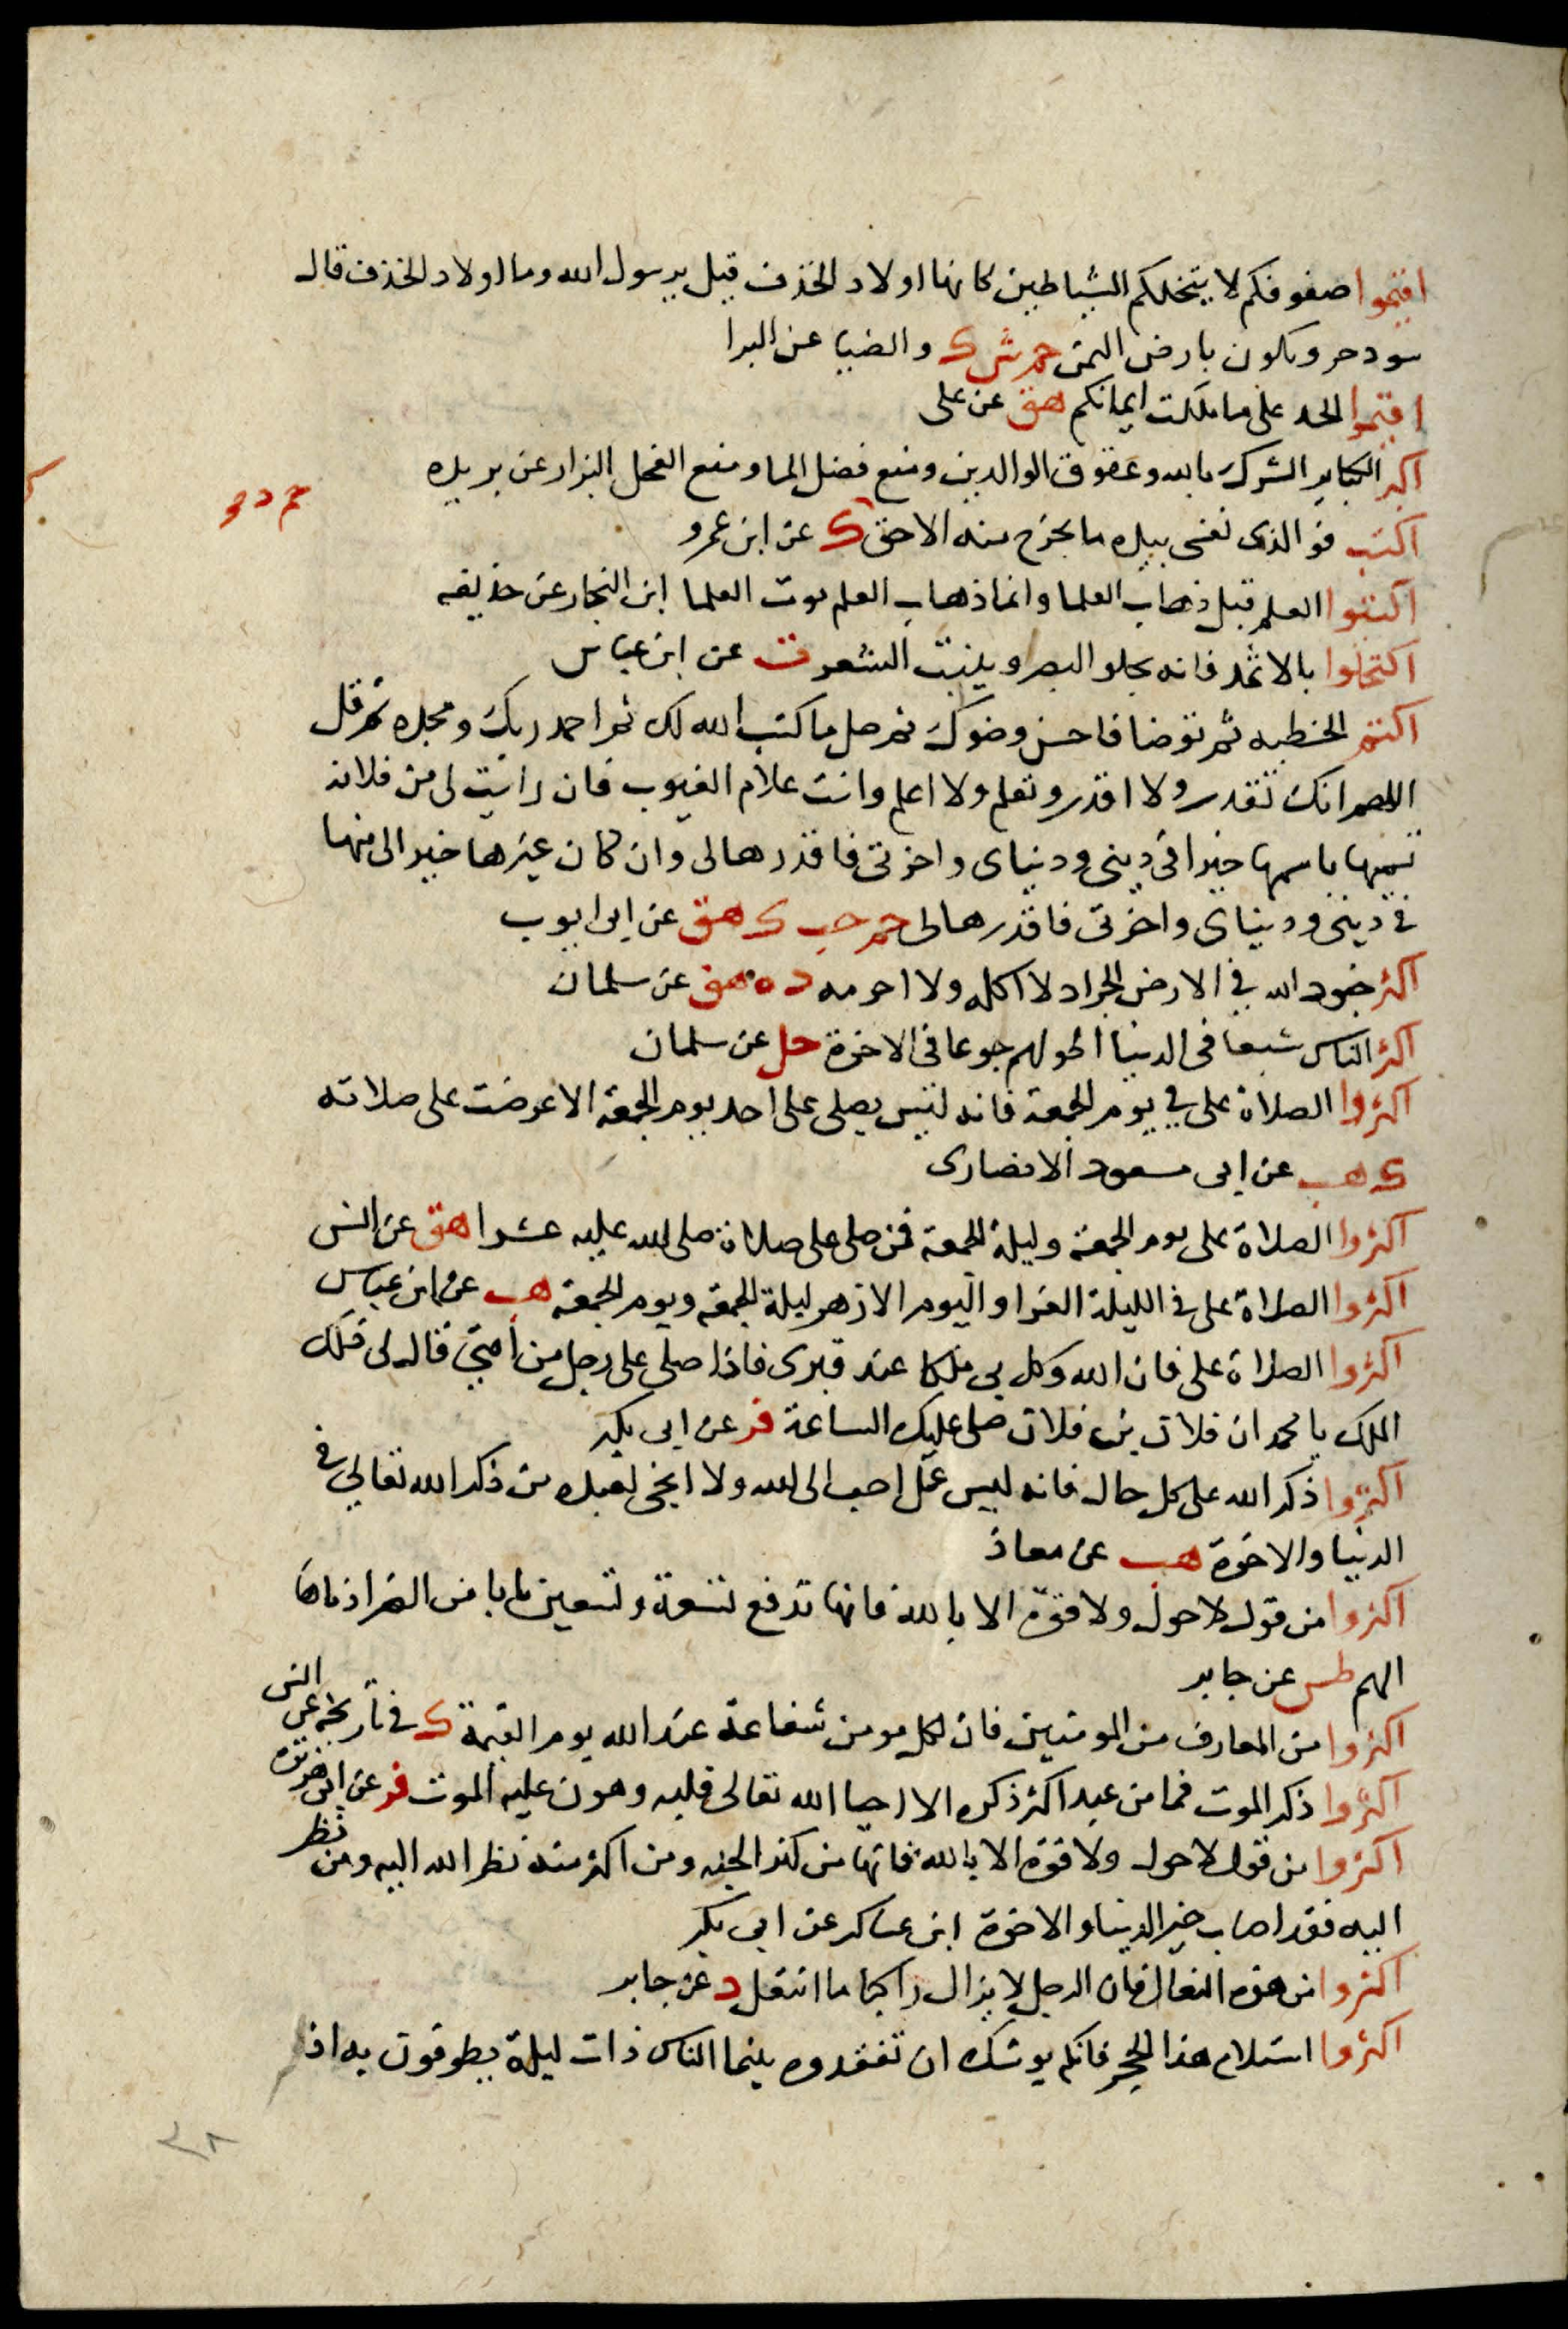 اقيموا صفوفكم لا يتخللكم الشياطين كانها اولاد الخذف قيل يرسول الله وما اولاد الخذف قال
سود جرد تكون بارض اليمن حم ش ك والضيا عن البرا
اقيموا الحد على ما ملكت ايمانكم هق عن على
اكبر الكباير الشرك بالله وعقوق الوالدين ومنع فضل الما ومنع الفحل البزار عن بريده
حم د
اكتب فو الذى نفسى بيده ما يخرج منه الا حق ك عن ابن عمرو
اكتبوا العلم قبل ذهاب العلما وانما ذهاب العلم موت العلما ابن النجار عن حذيفه
اكتحلوا بالاثمد فانه يجلو البصر وينبت الشعر ت عن ابن عباس
اكتم الخطبه ثم توضا فاحسن وضوك ثم صل ما كتب الله لك ثم احمد ربك ومجده ثم قل
اللهم انك تقدر ولا اقدر وتعلم ولا اعلم وانت علام الغيوب فان رايت لى من فلانه
تسميها باسمها خيرا فى دينى ودنياى واخرتى فاقدرها لى وان كان غيرها خير الى منها
فى دينى ودنياى واخرتى فاقدرها لى حم حب ك هق عن ابى ايوب
اكثر جنود الله في الارض الجراد لا اكله ولا احرمه د ه هق عن سلمان
اكثر الناس شبعا فى الدنيا اطولهم جوعا فى الاخرة حل عن سلمان
اكثروا الصلاة على في يوم الجمعة فانه ليس يصلى على احد يوم الجمعة الا عرضت على صلاته
ك هب عن ابى مسعود الانصارى
اكثروا الصلاة على يوم الجمعة وليلة الجمعة فمن صلى على صلاة صلى الله عليه عشرا هق عن انس
اكثروا الصلاة على فى الليلة الغرا واليوم الازهر ليلة الجمعة ويوم الجمعة هب عن ابن عباس
اكثروا الصلاة على فان الله وكل بى ملكا عند قبرى فاذا صلى على رجل من أمتى قال لى ذلك
الملك يا محمد ان فلان بن فلان صلى عليك الساعة فر عن ابى بكر
اكثروا ذكر الله على كل حال فانه ليس عمل احب الى الله ولا انجى لعبده من ذكر الله تعالى فى
الدنيا والاخرة هب عن معاذ
اكثروا من قول لا حول ولا قوة الا بالله فانها تدفع تسعة وتسعين بابا من الضر ادناها
الهم طس عن جابر
اكثروا من المعارف من المومنين فان لكل مومن شفاعة عند الله يوم القيمة ك في تاريخه عن انس
اكثروا ذكر الموت فما من عبد اكثر ذكره الا احيا الله تعالى قلبه وهون عليه الموت فر عن ابى هريره
اكثروا من قول لا حول ولا قوة الا بالله فانها من كنز الجنه ومن اكثر منه نظر الله اليه ومن نظر
اليه فقد اصاب خير الدنيا والاخرة ابن عساكر عن ابى بكر
اكثروا من هذه النعال فان الرجل لا يزال راكبا ما انتعل د عن جابر
اكثروا استلام هذا الحجر فانكم يوشك ان تفقدوه بينما الناس ذات ليلة يطوفون به اذ
٣٨